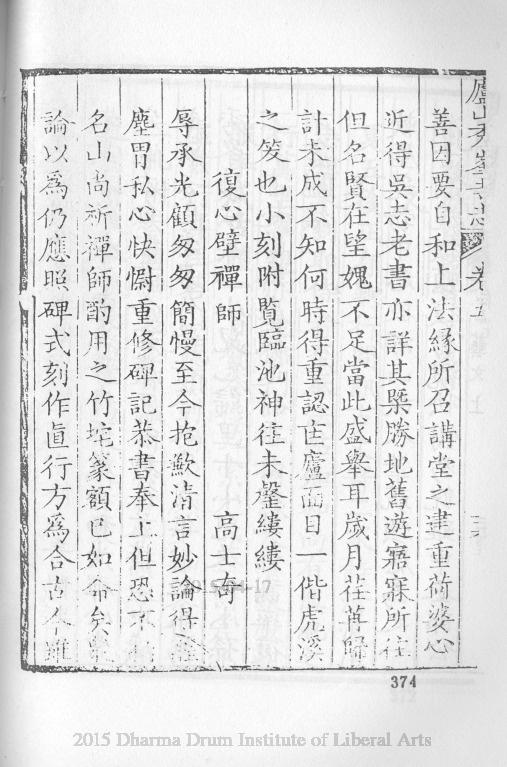 廬山秀峯寺志 卷五
善因要自和上法緣所召講堂之建重荷婆心
近得吳志老書亦詳其槩勝地舊遊寤寐所往
但名賢在望媿不足當此盛舉耳歲月荏苒歸
計未成不知何時得重認匡廬面目一偕虎溪
之笑也小刻附覽臨池神往未罄縷縷
復心壁禪師 高士奇
辱承光顧匆匆簡慢至今抱歉清言妙論得
塵胃私心快慰重修碑記恭書奉上但恐不
名山尚祈禪師酌用之竹垞篆額已如命矣
論以爲仍應照碑式刻作眞行方爲合古今雖
2015-04-17
374
2015 Dharma Drum Institute of Liberal Arts